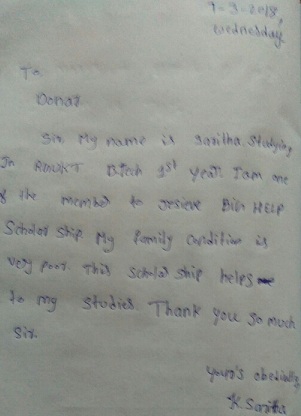 7-3-2018,
wednesday
To
Donar.
Sir. My name is Saritha. Studying
In RGUKT B.tech 1st year. I am one
of the member to resieve Big HELP
Scholar Ship. My family Condition is
very poor. This scholar ship helps
to my studies. Thank you so much
sir.
your's obediently
K Saritha